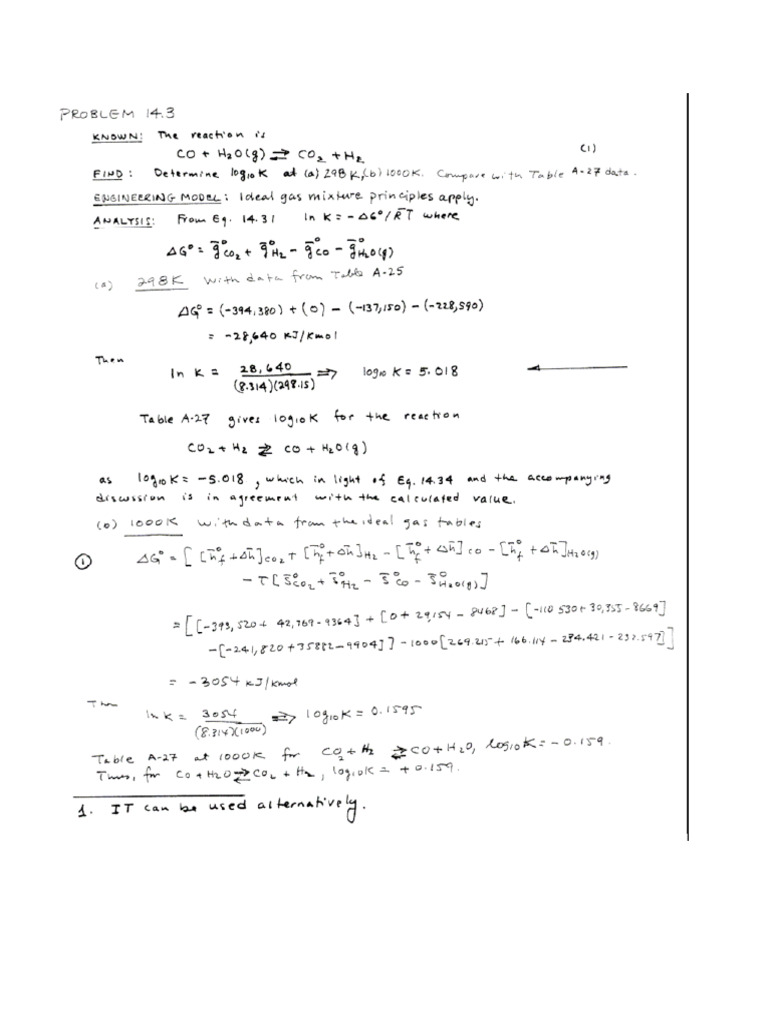 PROBLEM 14.3
KNOWN: The reaction is
CO + H₂O(g) ⇌ CO₂ + H₂ (1)
FIND: Determine log₁₀K at (a) 298K, (b) 1000K. Compare with Table A-27 data.
ENGINEERING MODEL: Ideal gas mixture principles apply.
ANALYSIS: From Eq. 14.31 ln K = -ΔG°/R̄T where
ΔG° = ḡ°CO₂ + ḡ°H₂ - ḡ°CO - ḡ°H₂O(g)
(a) 298K with data from Table A-25
ΔG° = (-394,380) + (0) - (-137,150) - (-228,590)
= -28,640 KJ/Kmol
Then
ln K = 28,640 / (8.314)(298.15) ⇒ log₁₀ K = 5.018
Table A-27 gives log₁₀K for the reaction
CO₂ + H₂ ⇌ CO + H₂O(g)
as log₁₀K = -5.018, which in light of Eq. 14.34 and the accompanying
discussion is in agreement with the calculated value.
(b) 1000K with data from the ideal gas tables
① ΔG° = [[h̄°f + Δh̄]CO₂ + [h̄°f + Δh̄]H₂ - [h̄°f + Δh̄]CO - [h̄°f + Δh̄]H₂O(g)
- T[s̄°CO₂ + s̄°H₂ - s̄°CO - s̄°H₂O(g)]
= [[-393,520 + 42,769 - 9364] + [0 + 29,154 - 8468] - [-110 530 + 30,355 - 8669]
-[-241,820 + 35882 - 9904]] - 1000[269.215 + 166.114 - 234.421 - 232.597]]
= -3054 kJ/kmol
Then
ln K = 3054 / (8.314)(1000) ⇒ log₁₀K = 0.1595
Table A-27 at 1000K for CO₂ + H₂ ⇌ CO + H₂O, log₁₀K = -0.159.
Thus, for CO + H₂O ⇌ CO₂ + H₂, log₁₀K = +0.159.
1. IT can be used alternatively.